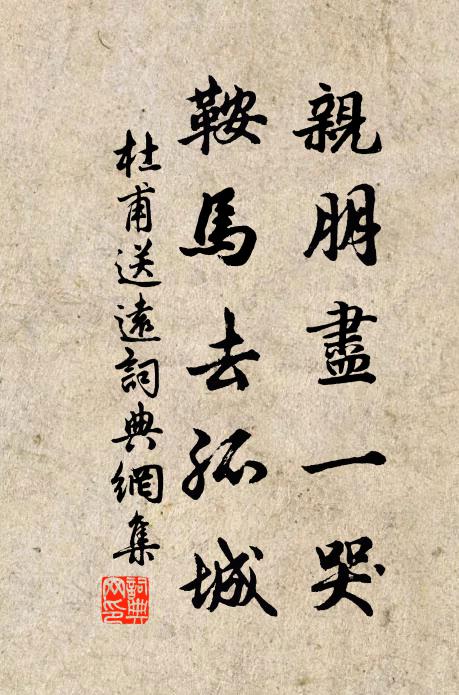 親朋盡一哭
鞍馬去孤城
杜甫送遠詞典網集
詞典
网印